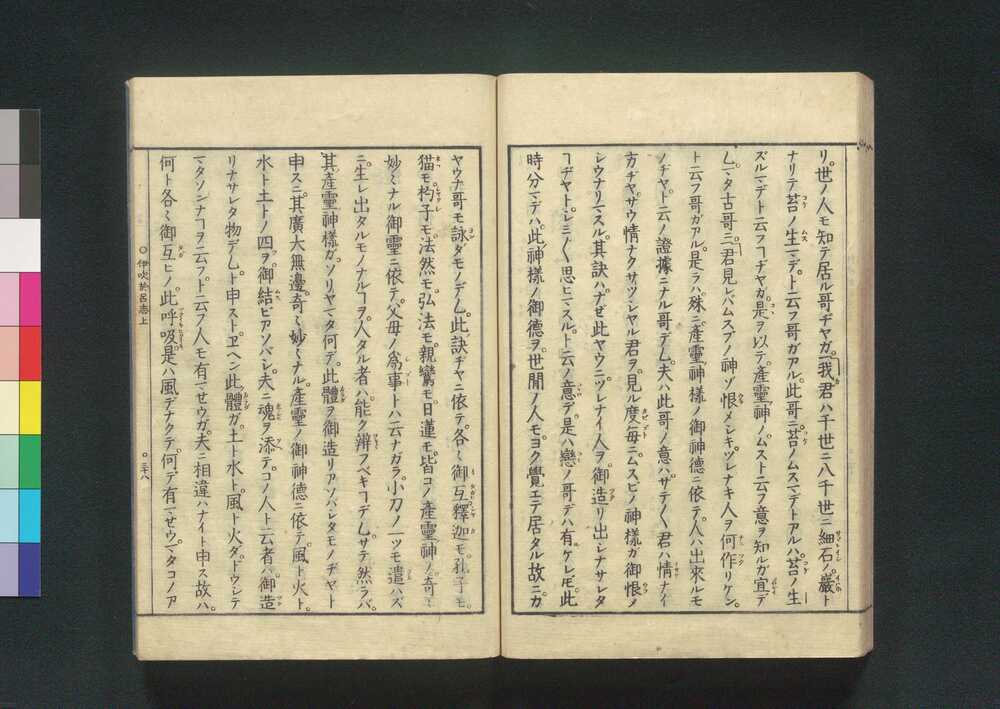 リ。世ノ人モ知テ居ル哥ヂヤガ。我君ハ千世ニ八千世ニ細石ノ巖ト
ナリテ苔ノ生マデ。ト云フ哥ガアル。此哥ニ苔ノムスマデトアルハ。苔ノ生
ズルマデト云フヿヂヤガ。是ヲ以テ。產靈神ノムスト云フ意ヲ知ルガ宜デ
乙。マタ古哥ニ。君見レバムスブノ神ゾ恨メシキ。ツレナキ人ヲ何作リケン。
ト云フ哥ガアル。是ラハ殊ニ產靈神樣ノ御神德ニ依テ。人ハ出來ルモ
ノヂヤ。ト云ノ證據ニナル哥デ乙。夫ハ此哥ノ意ハ。サテ〱君ハ情ナイ
方ヂヤ。ザウ情ナクサツシヤル君ヲ。見ル度每ニ。ムスビノ神樣ガ御恨メ
シウナリマスル。其訣ハ。ナゼ此ヤウニ。ツレナイ人ヲ御造リ出シナサレタ
ヿヂヤト。シミ〲思ヒマスル。ト云ノ意デ。是ハ戀ノ哥デハ有ケレ𪜈。此
時分マデハ。此神樣ノ御德ヲ。世間ノ人モヨク覺エテ居タル故ニ。カ
ヤウナ哥モ詠ダモノデ乙。此訣ヂヤニ依テ。各〻御互。釋迦モ。孔子モ。
猫モ杓子モ。法然モ。弘法モ。親鸞モ。日蓮モ。皆コノ產靈神ノ奇〻
妙〻ナル御靈ニ依テ。父母ノ爲事トハ云ナガラ。小刀ノ一ツモ遣ハズ
ニ。生レ出タルモノナルヿヲ。人タル者ハ。能ク辨フベキヿデ乙。サテ然ラバ。
其產靈神樣ガ。ソリヤマタ何デ。此體ヲ御造リアソバレタモノヂヤト
申スニ。其廣大無邊。奇〻妙〻ナル。產靈ノ御神德ニ依テ。風ト火ト。
水ト土トノ四ヲ。御結ビアソバシ。夫ニ魂ヲ添テ。コノ人ト云者ハ。御造
リナサレタ物デ乙。ト申ストヱヘン此體ガ。土ト水ト。風ト火ダ。ドウシテ
マタソンナヿヲ云フ。ト云フ人モ有マセウガ。夫ニ相違ハナイト申ス故ハ。
何ト各〻御互ヒノ。此呼吸。是ハ風デナクテ。何デ有マセウ。マタコノア
○伊吹於呂志上
○三十八